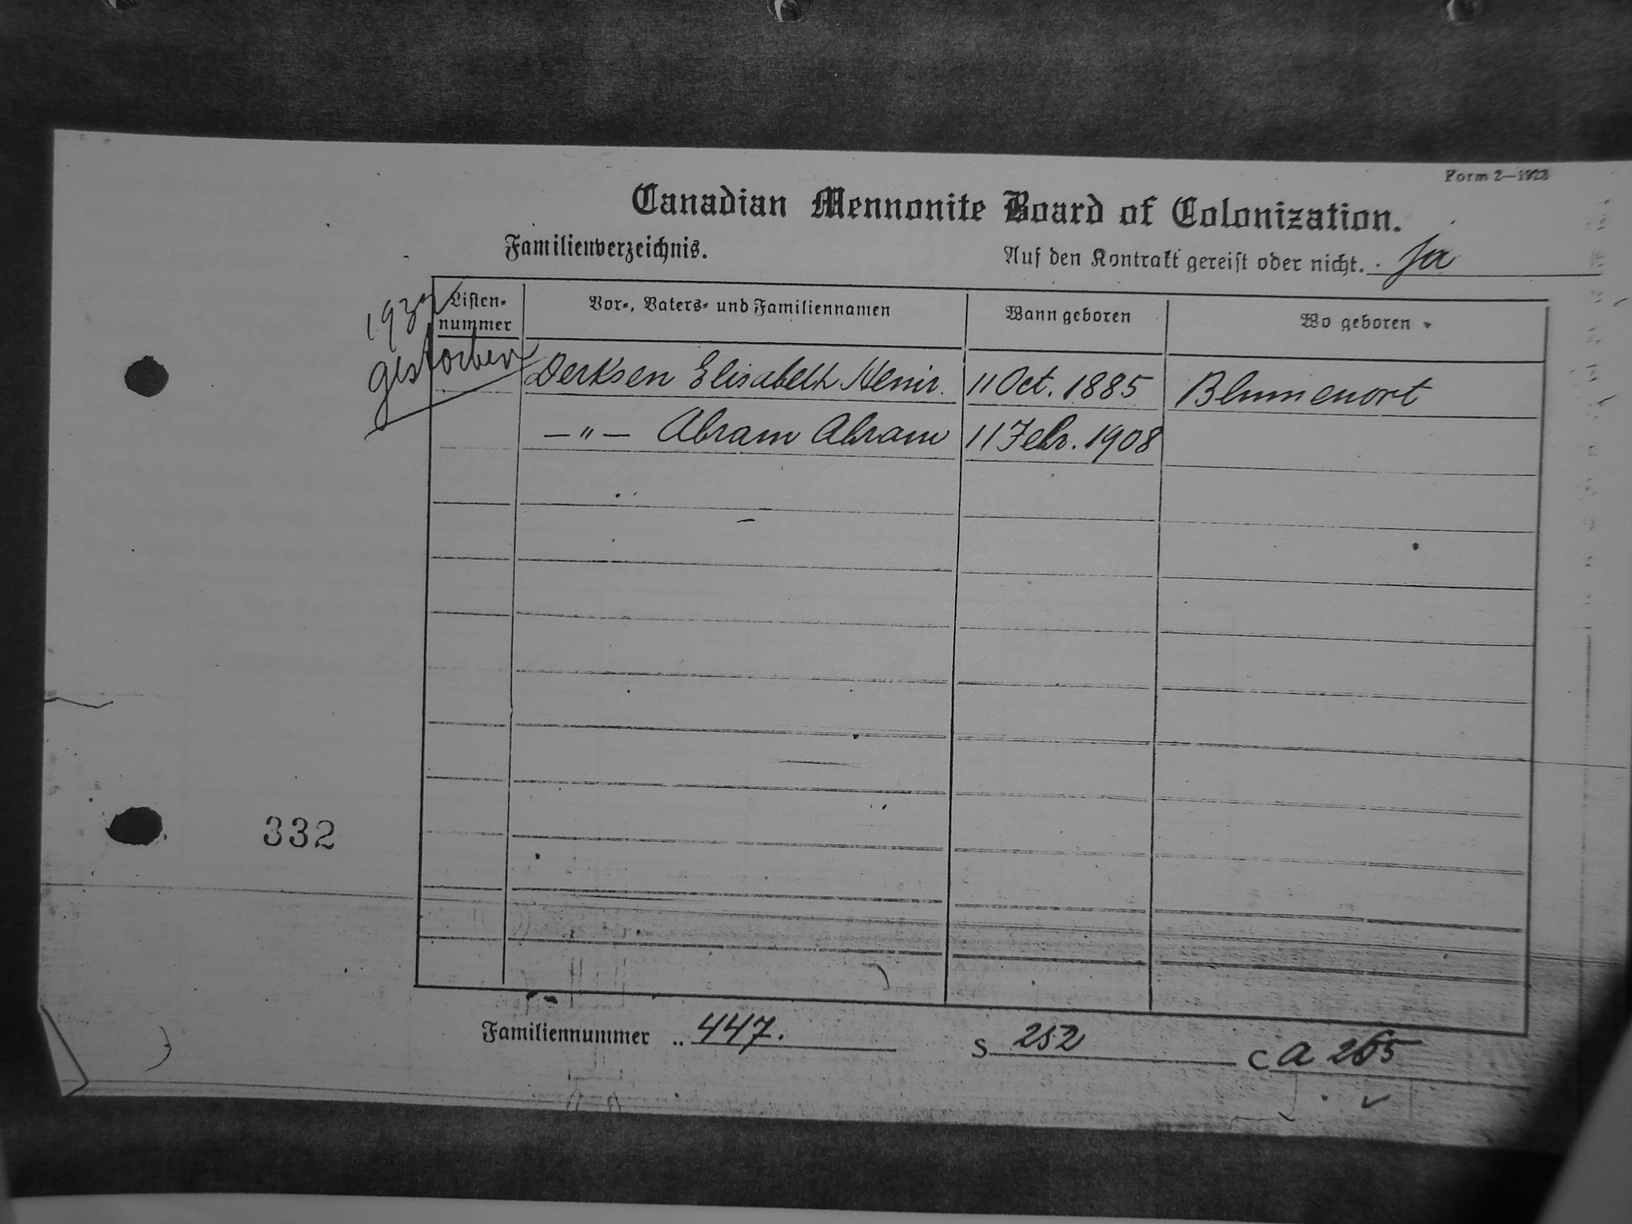 Form 2—1923
Canadian Mennonite Board of Colonization.
Familienverzeichnis. Auf den Kontrakt gereist oder nicht. Ja
Listen-nummer Vor-, Vaters- und Familiennamen Wann geboren Wo geboren
gestorben Derksen Elisabeth Heinr. 11 Oct. 1885 Blumenort
—"— Abram Abram 11 Febr. 1908
332
Familiennummer 447. S 252 C a 265